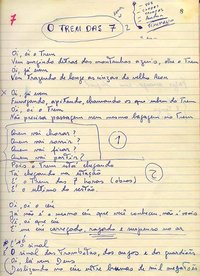 7
O TREM DAS 7
8
Oi, oi o Trem
Vem surgindo detrás das montanhas azuis, olha o Trem
Oi, já vem
Vem Trazendo de longe as cinzas do velho Aeon
Oi, já vem
Fumegando, apitando, chamando os que sabem do Trem
Oi, oi o Trem
Não precisa passagem nem mesmo bagagem no Trem
Quem vai chorar?
Quem vai sorrir?
Quem vai ficar?
Quem vai partir?
1
Pois o Trem está chegando
Tá chegando na estação
É o Trem das 7 horas
É o último do sertão
2
Oi, oi o céu
Já não é o mesmo céu que você conheceu, não é mais
Oi, que céu
É um céu carregado, rajado e suspenso no ar
O sinal
O sinal das Trombetas, dos anjos e dos guardiões
Oi, lá vem Deus
Deslizando no céu entre brumas de mil megatons